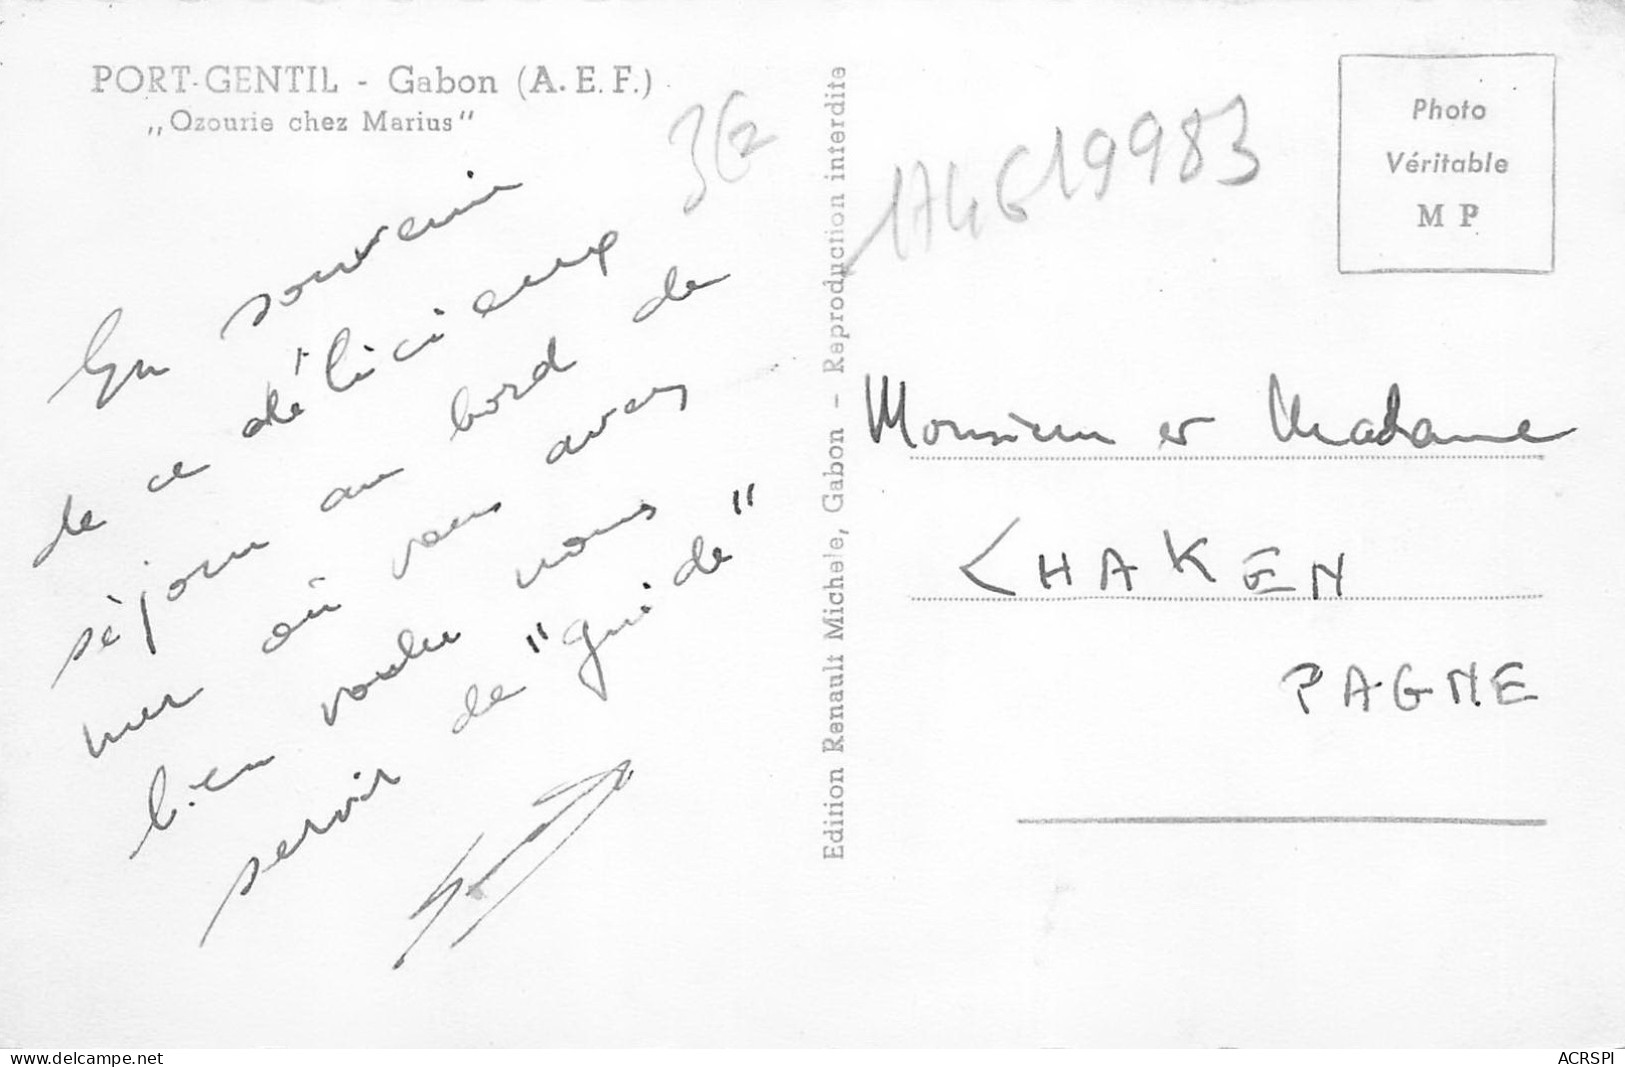 PORT-GENTIL - Gabon (A.E.F.)
„Ozourie chez Marius"
En souvenir
de ce délicieux
séjour au bord de
mer où vous avez
bien voulu nous
servir de "guide"
Edition Renault Michele, Gabon - Reproduction interdite
Photo
Véritable
M P
Monsieur et Madame
CHAKEN
PAGNE
www.delcampe.net
ACRSPI